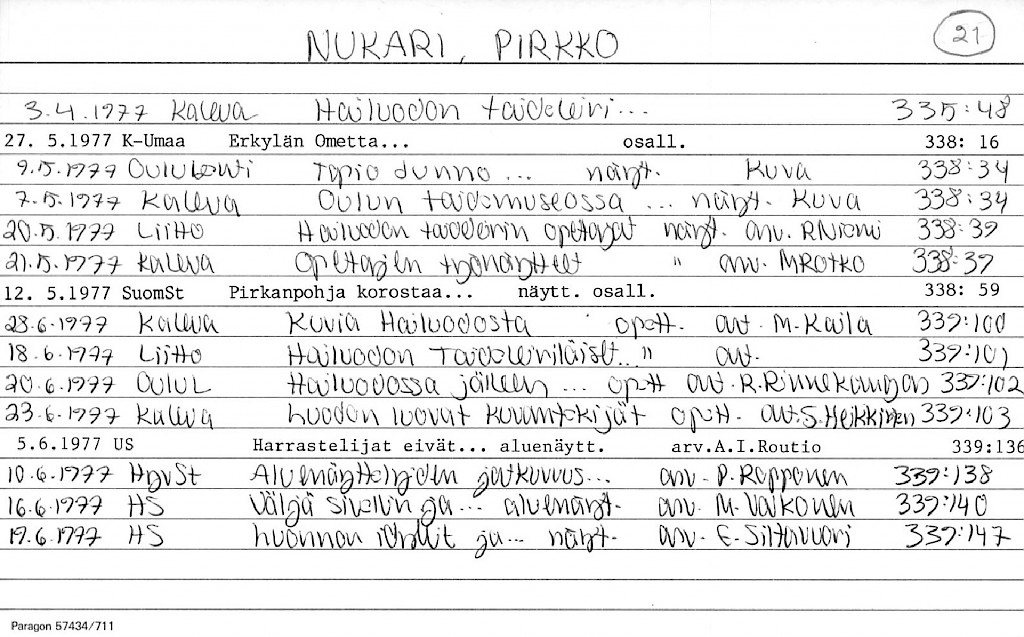 NUKARI, PIRKKO 21
3.4.1977 Kaleva Hailuodon taideleiri... 335:48
27. 5.1977 K-Umaa Erkylän Ometta... osall. 338: 16
9.5.1977 OuluLehti Tapio Junno ... näyt. Kuva 338:34
7.5.1977 Kaleva Oulun taidemuseossa ... näyt. Kuva 338:34
20.5.1977 Liitto Hailuodon taideleirin opettajat näyt. arv. R.Niemi 338:39
21.5.1977 Kaleva Opettajien työnäytteet " arv. M Rotko 338:39
12. 5.1977 SuomSt Pirkanpohja korostaa... näytt. osall. 338: 59
28.6.1977 Kaleva Kuvia Hailuodosta opett. art. M. Kaila 339:100
18.6.1977 Liitto Hailuodon Taideleiriläiset.. " art. 339:101
20.6.1977 OuluL Hailuodossa jälleen ... opett art. R.Rinnekangas 339:102
23.6.1977 Kaleva Luodon luovat opett. art.S.Heikkinen 339:103
5.6.1977 US Harrastelijat eivät... aluenäytt. arv.A.I.Routio 339:136
10.6.1977 HgvSt Aluenäyttelyiden jatkuvuus... arv. P. Rapponen 339:138
16.6.1977 HS Väljä sivellin ja... aluenäyt. arv. M. Valkonen 339:140
19.6.1977 HS Luonnon ja... näyt. arv. E. Siltavuori 339:147
Paragon 57434/711